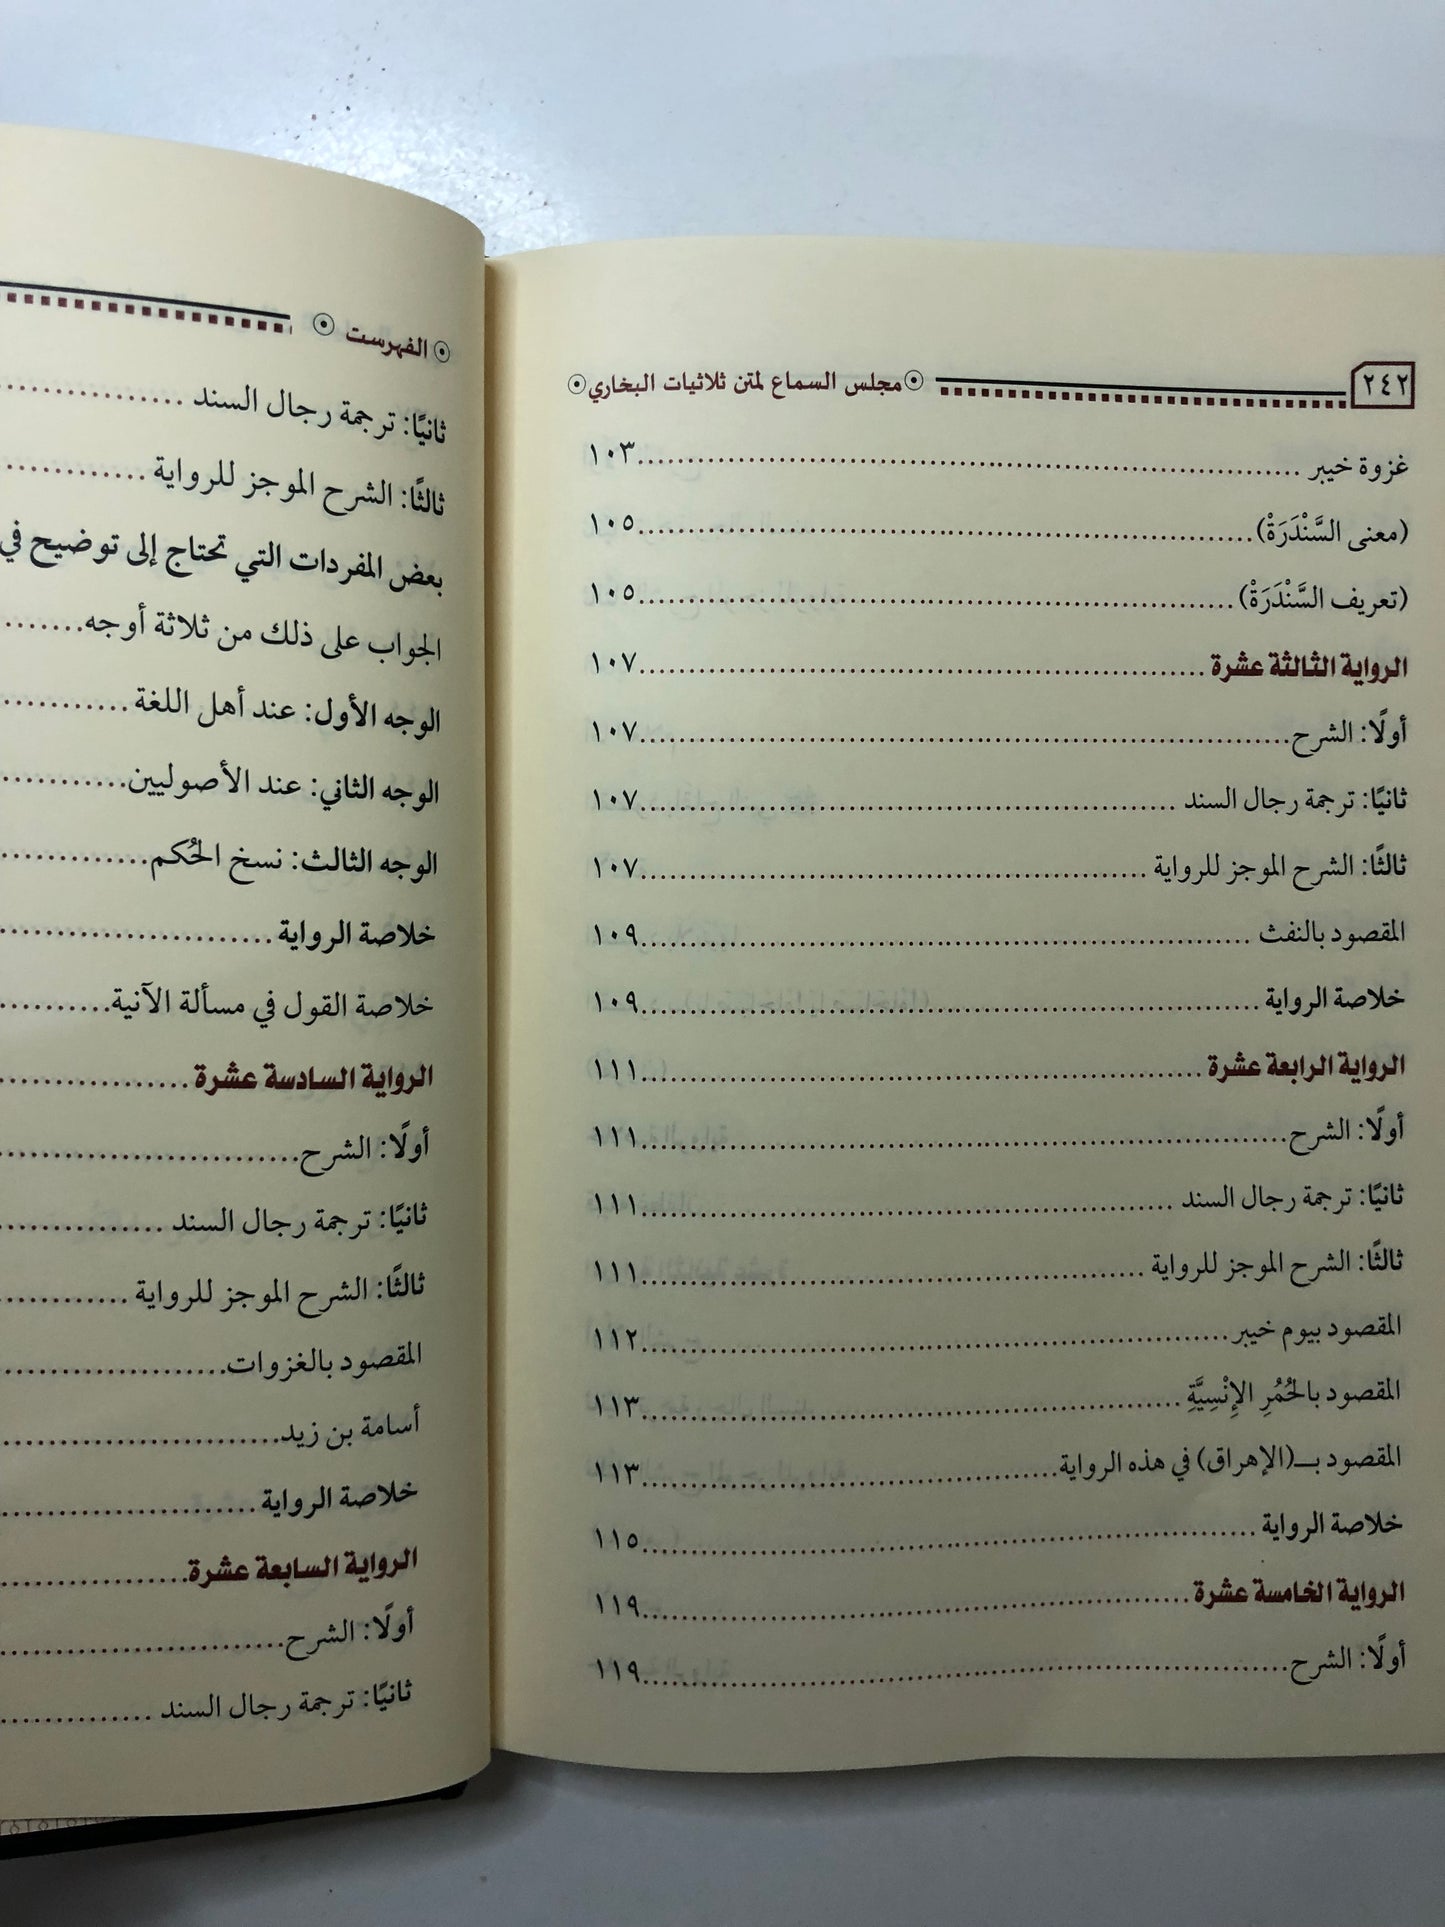 ٢٤٢ مجلس السماع لمتن ثلاثيات البخاري
غزوة خيبر ........ ١٠٣
(معنى السَّنْدَرَةْ) ........ ١٠٥
(تعريف السَّنْدَرَةْ) ........ ١٠٥
الرواية الثالثة عشرة ........ ١٠٧
أولًا: الشرح ........ ١٠٧
ثانيًا: ترجمة رجال السند ........ ١٠٧
ثالثًا: الشرح الموجز للرواية ........ ١٠٧
المقصود بالنفث ........ ١٠٩
خلاصة الرواية ........ ١٠٩
الرواية الرابعة عشرة ........ ١١١
أولًا: الشرح ........ ١١١
ثانيًا: ترجمة رجال السند ........ ١١١
ثالثًا: الشرح الموجز للرواية ........ ١١١
المقصود بيوم خيبر ........ ١١٢
المقصود بالحُمُرِ الإِنْسِيَّةِ ........ ١١٣
المقصود بـ(الإهراق) في هذه الرواية ........ ١١٣
خلاصة الرواية ........ ١١٥
الرواية الخامسة عشرة ........ ١١٩
أولًا: الشرح ........ ١١٩
الفهرست
ثانيًا: ترجمة رجال السند ........
ثالثًا: الشرح الموجز للرواية ........
بعض المفردات التي تحتاج إلى توضيح في
الجواب على ذلك من ثلاثة أوجه ........
الوجه الأول: عند أهل اللغة ........
الوجه الثاني: عند الأصوليين ........
الوجه الثالث: نسخ الحُكم ........
خلاصة الرواية ........
خلاصة القول في مسألة الآنية ........
الرواية السادسة عشرة ........
أولًا: الشرح ........
ثانيًا: ترجمة رجال السند ........
ثالثًا: الشرح الموجز للرواية ........
المقصود بالغزوات ........
أسامة بن زيد ........
خلاصة الرواية ........
الرواية السابعة عشرة ........
أولًا: الشرح ........
ثانيًا: ترجمة رجال السند ........